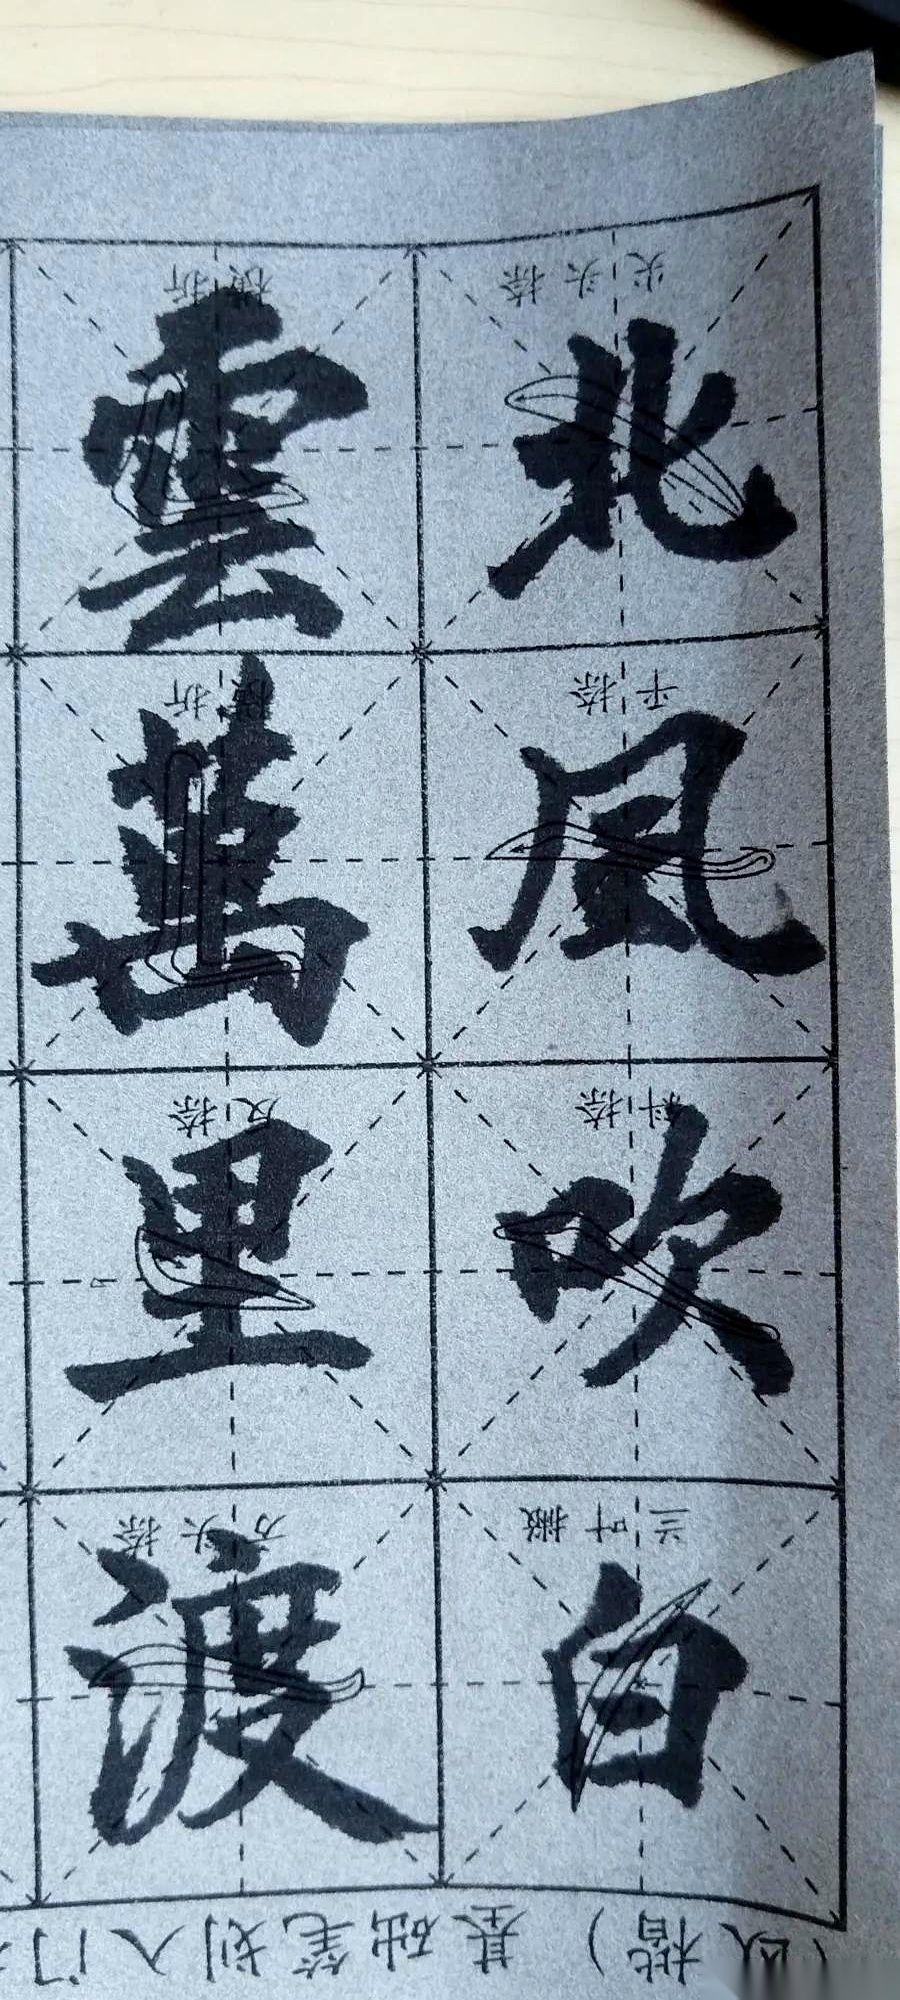 北風吹白
雲萬里渡
尖头捺
平捺
斜捺
兰叶撇
横折
折
反捺
方头捺
(欧楷)基础笔划入门